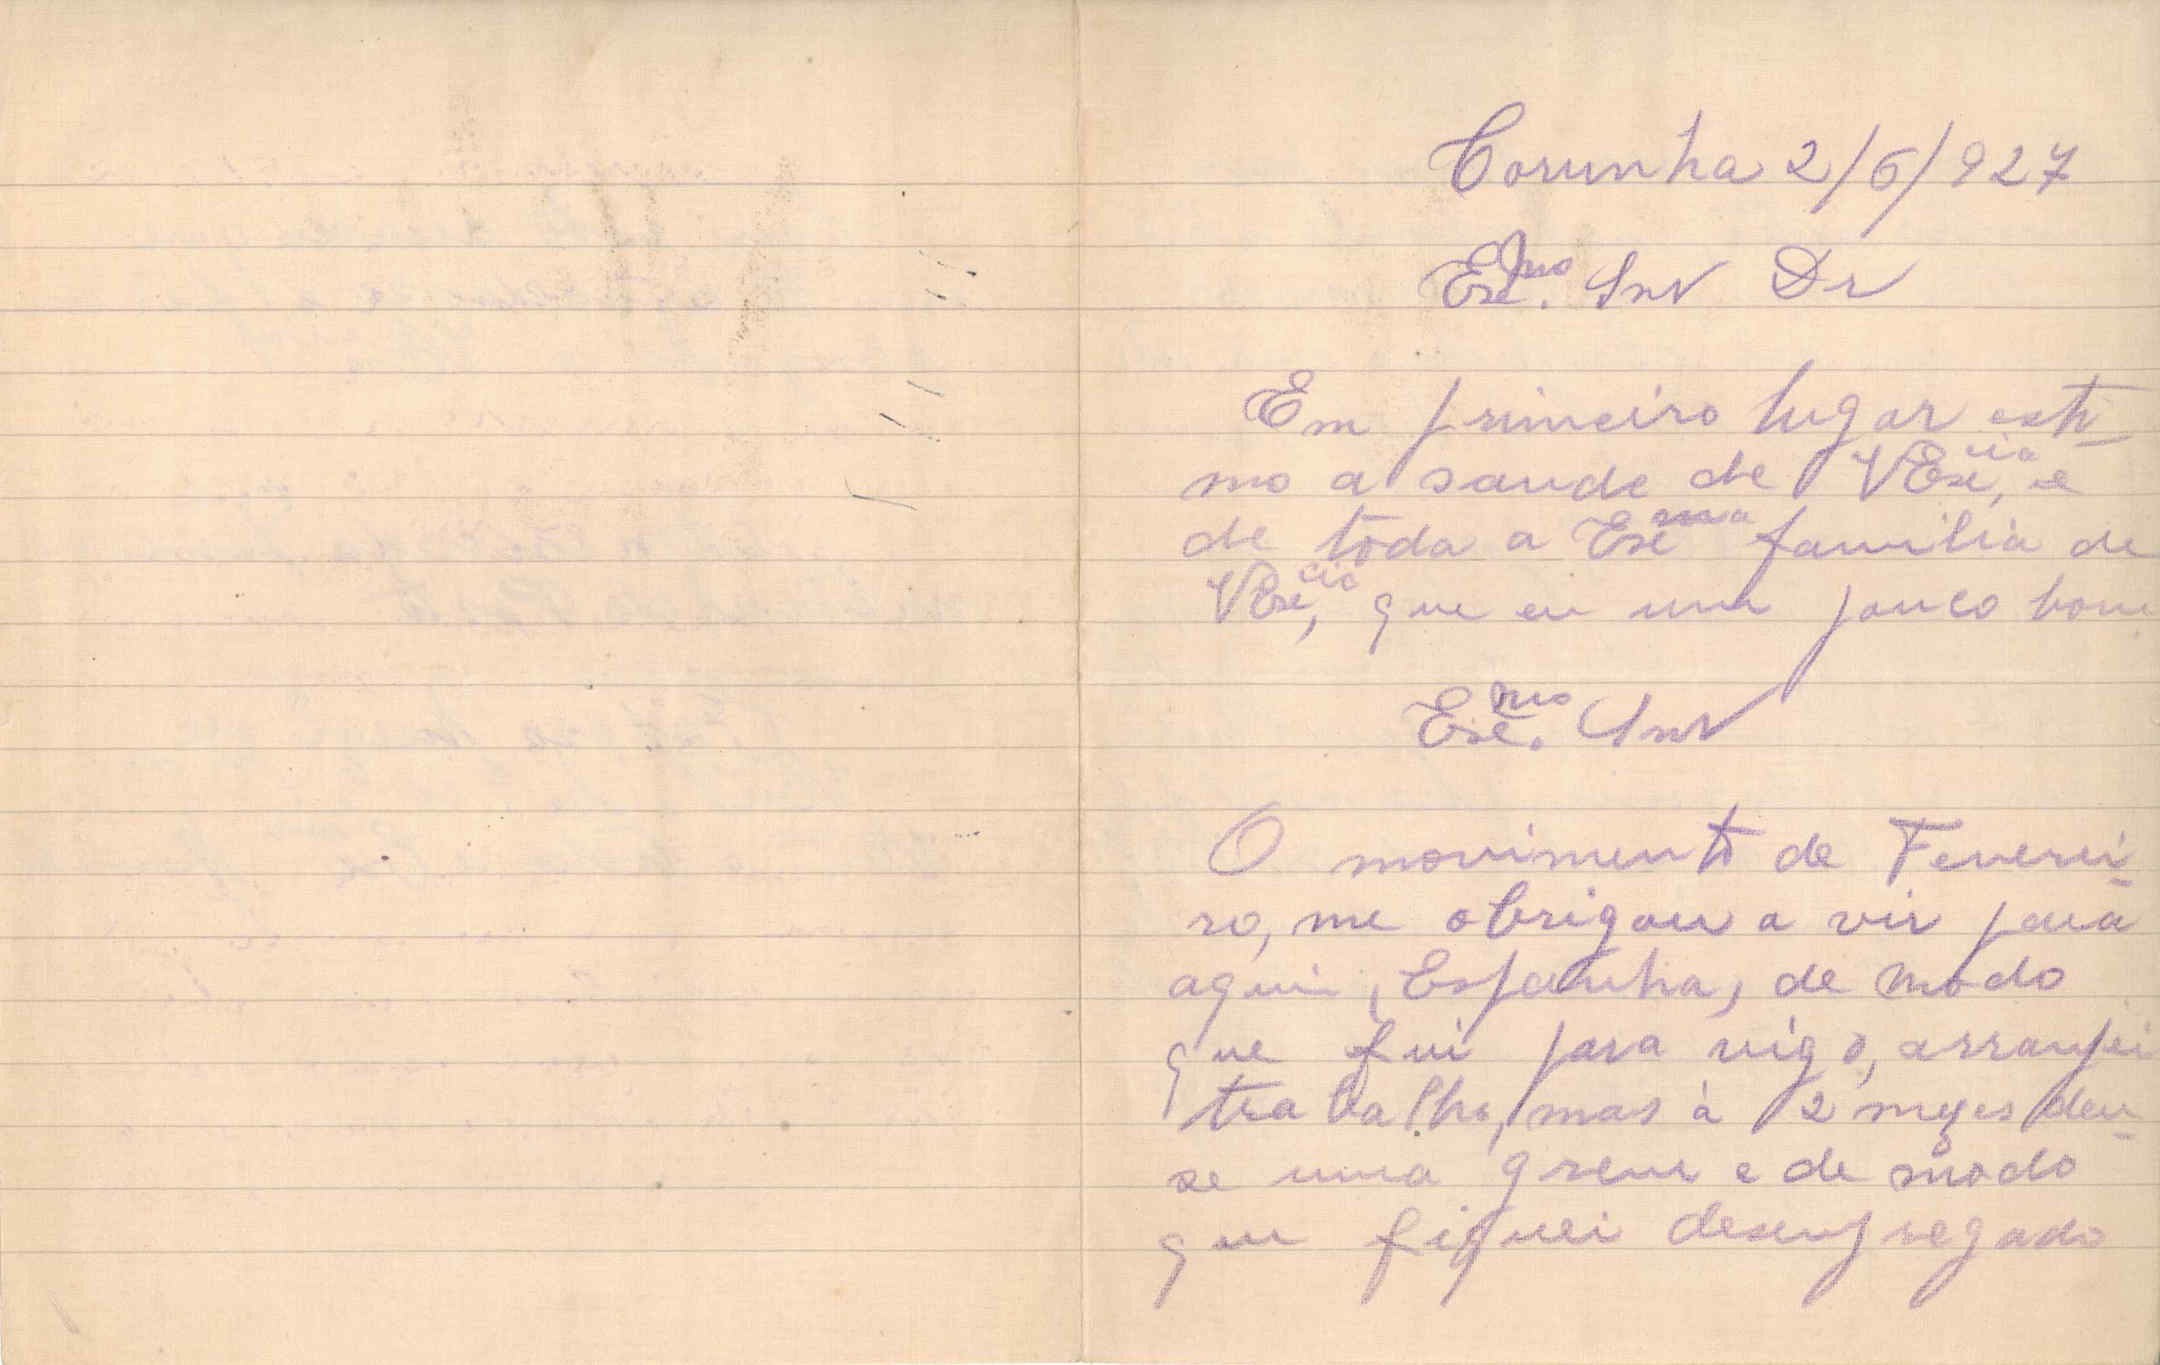 Corunha 2/6/927
Exc.mo Snr Dr
Em primeiro lugar esti-
mo a saude de VExcia, e
de toda a Excma familia de
VExcia, que eu um pouco bom
Exc.mo Snr
O movimento de Feverei-
ro, me obrigou a vir para
aqui, Espanha, de modo
que fui para vigo, arranjei
trabalho, mas à 2 mezes deu-
se uma greve e de modo
que fiquei desempregado